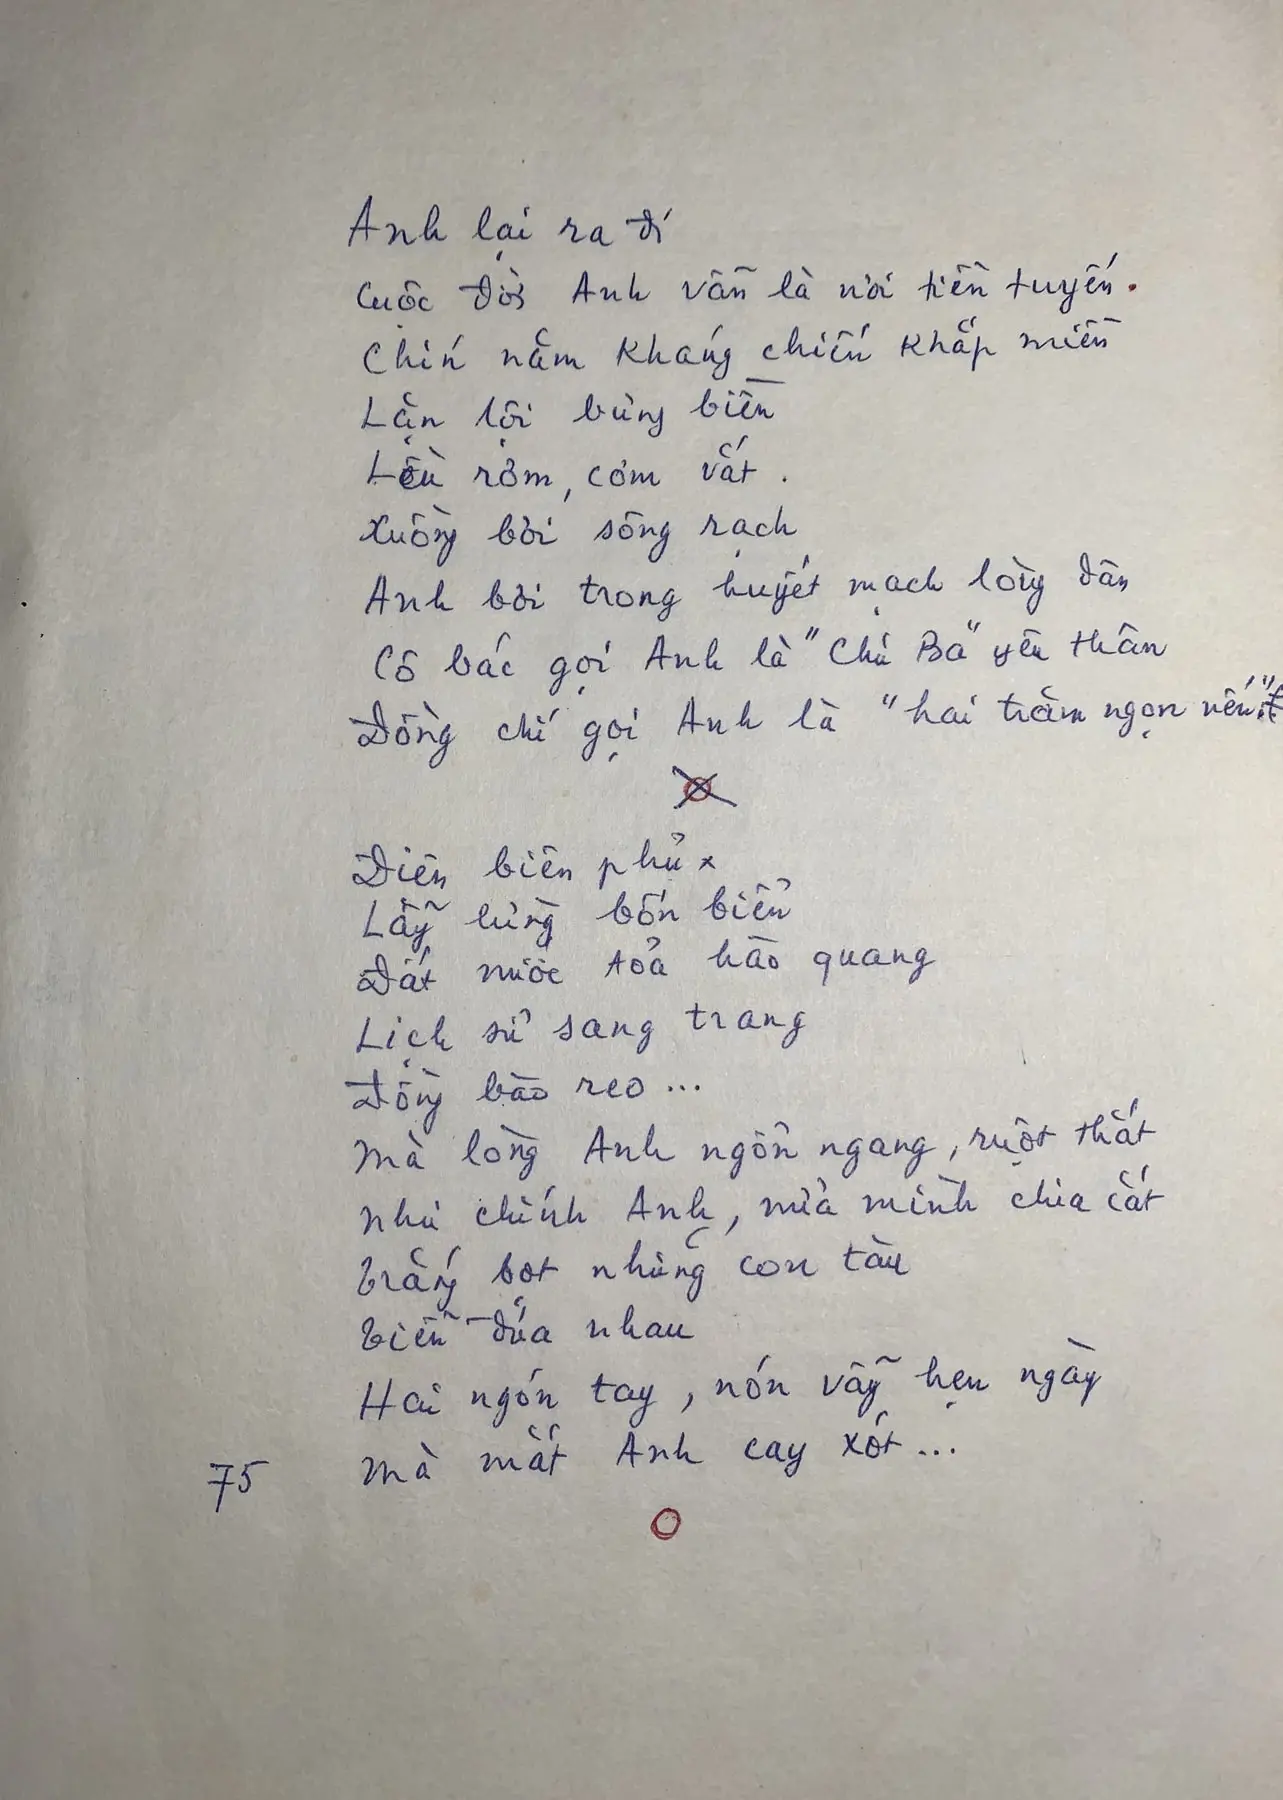 Anh lại ra đi
Cuộc đời Anh vẫn là nơi tiền tuyến.
Chín năm kháng chiến khắp miền
Lặn lội bưng biền
Lều rơm, cơm vắt.
Xuồng bơi sông rạch
Anh bơi trong huyết mạch lòng dân
Cô bác gọi Anh là "Chú Ba" yêu thân
Đồng chí gọi Anh là "hai trăm ngọn nến"
Điên biên phủ x
Lẫy lừng bốn biển
Đất nước tỏa hào quang
Lịch sử sang trang
Đồng bào reo...
Mà lòng Anh ngổn ngang, ruột thắt
như chính Anh, nửa mình chia cắt
trắng bọt những con tàu
tiễn đưa nhau
Hai ngón tay, nón vẫy hẹn ngày
75 mà mắt Anh cay xót...